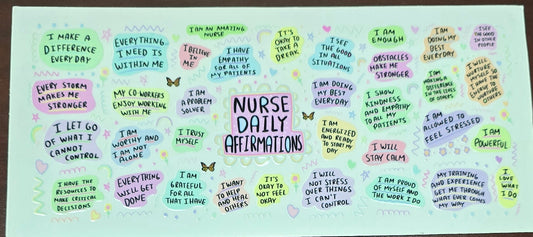 I MAKE A
DIFFERENCE
EVERY DAY
EVERYTHING
I NEED IS
WITHIN ME
I AM AN AMAZING
NURSE
I BELIEVE
IN
ME
I HAVE
EMPATHY
FOR ALL OF
MY PATIENTS
IT'S
OKAY TO
TAKE A
BREAK
I SEE
THE GOOD
IN ALL
SITUATIONS
I AM
ENOUGH
OBSTACLES
MAKE ME
STRONGER
I AM
DOING MY
BEST
EVERYDAY
I SEE
THE GOOD
IN OTHER
PEOPLE
EVERY STORM
MAKES ME
STRONGER
MY CO-WORKERS
ENJOY WORKING
WITH ME
I AM
A PROBLEM
SOLVER
NURSE
DAILY
AFFIRMATIONS
I AM DOING
MY BEST
EVERYDAY
I SHOW
KINDNESS
AND EMPATHY
TO ALL
MY PATIENTS
I AM
MAKING A
DIFFERENCE
IN THE LIVES
OF OTHERS
I WILL
NURTURE
MYSELF SO
I HAVE THE
ENERGY TO
NURTURE
OTHERS
I LET GO
OF WHAT I
CANNOT
CONTROL
I AM
WORTHY AND
I AM NOT
ALONE
I TRUST
MYSELF
I AM
ENERGIZED
AND READY
TO START MY
DAY
I WILL
STAY CALM
I AM
ALLOWED TO
FEEL STRESSED
I AM
POWERFUL
I HAVE THE
RESOURCES TO
MAKE CRITICAL
DECISIONS
EVERYTHING
WILL GET
DONE
I AM
GRATEFUL
FOR ALL
THAT I HAVE
I WANT
TO HELP
AND HEAL
OTHERS
IT'S
OKAY TO
NOT FEEL
OKAY
I WILL
NOT STRESS
OVER THINGS
I CAN'T
CONTROL
I AM PROUD
OF MYSELF AND
THE WORK I DO
MY TRAINING
AND EXPERIENCE
GET ME THROUGH
WHAT EVER COMES
MY WAY
I
LOVE
WHAT
I DO